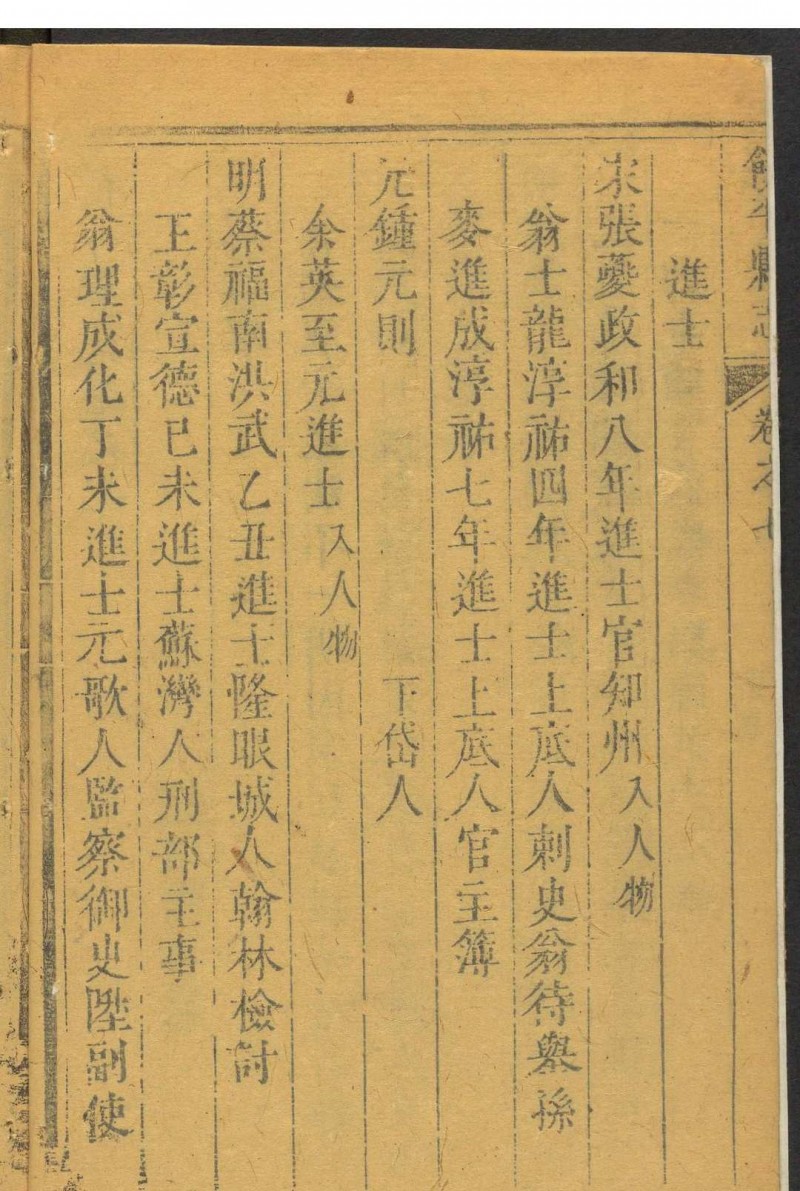 饒平縣志 卷之七
進士
宋張夔政和八年進士官知州入人物
翁士龍淳祐四年進士上底人刺史翁待舉孫
麥進成淳祐七年進士上底人官主簿
元鍾元則 下岱人
余英至元進士入人物
明蔡福南洪武乙丑進士隆眼城人翰林檢討
王彰宣德己未進士蘇灣人刑部主事
翁理成化丁未進士元歌人監察御史陞副使